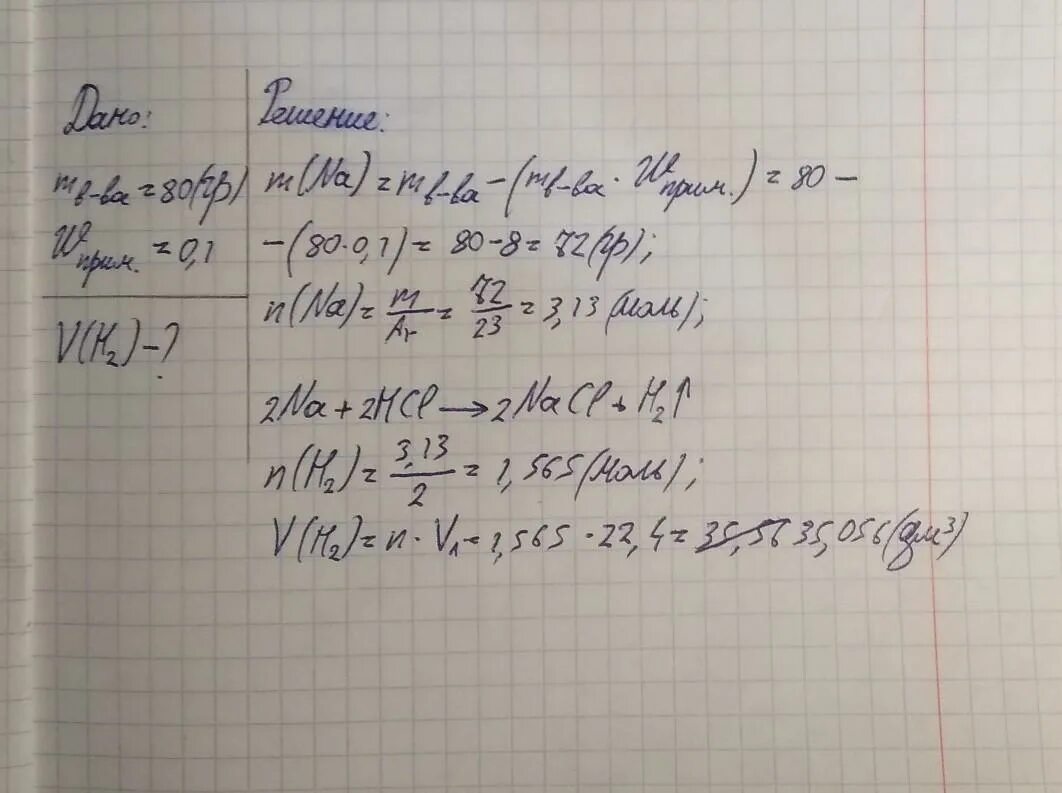 Дано:
m в-ва = 80(гр)
W прим. = 0,1
V(H₂) - ?
Решение:
m(Na) = m в-ва - (m в-ва · W прим.) = 80 -
- (80·0,1) = 80 - 8 = 72(гр);
n(Na) = m/Ar = 72/23 = 3,13 (моль);
2Na + 2HCl → 2NaCl + H₂↑
n(H₂) = 3,13/2 = 1,565 (моль);
V(H₂) = n · V₁ = 1,565 · 22,4 = 35,56 35,056 (дм³)